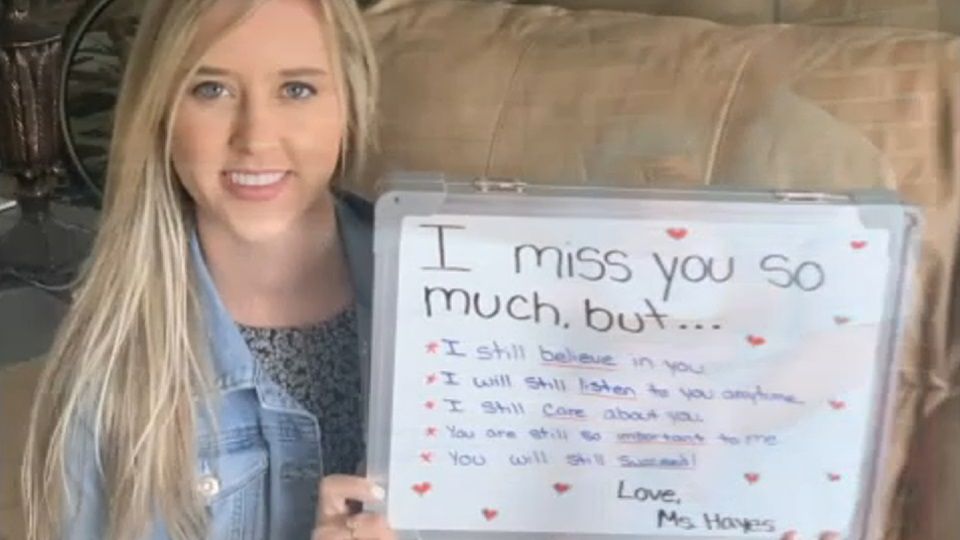 I miss you so
much, but...
* I still believe in you
* I will still listen to you anytime
* I still care about you
* You are still so important to me
* You will still succeed!
Love,
Ms. Hayes